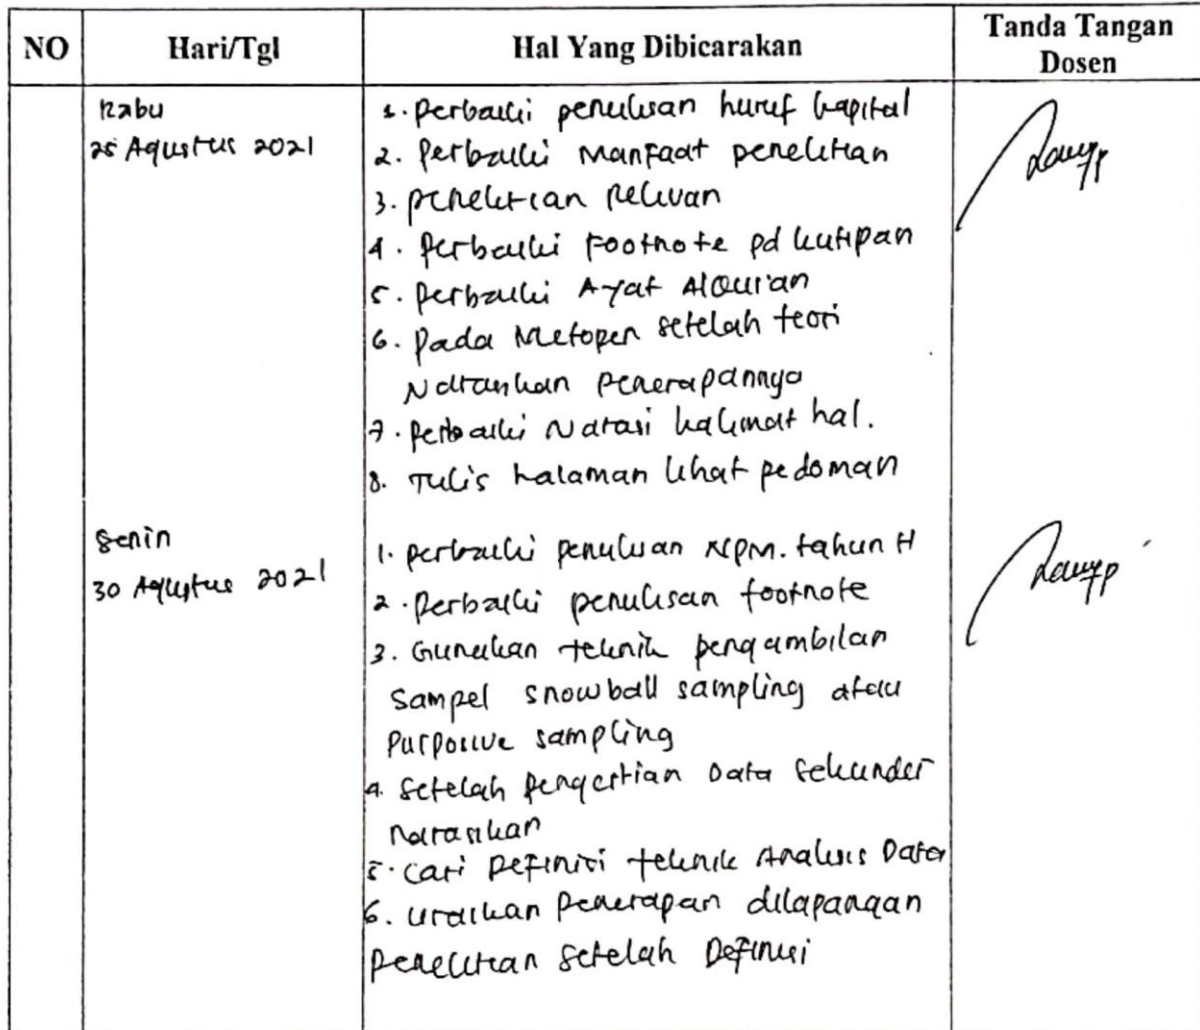 NO Hari/Tgl Hal Yang Dibicarakan Tanda Tangan Dosen
Rabu
25 Agustus 2021
1. Perbaiki penulisan huruf kapital
2. Perbaiki Manfaat penelitian
3. penelitian Relevan
4. Perbaiki Footnote pd kutipan
5. Perbaiki Ayat AlQur'an
6. Pada Metopen setelah teori
Narasikan penerapannya
7. Perbaiki Narasi kalimat hal.
8. Tulis halaman lihat pedoman
Senin
30 Agustus 2021
1. perbaiki penulisan NPM. tahun H
2. Perbaiki penulisan footnote
3. Gunakan teknik pengambilan
Sampel snowball sampling atau
Purposive sampling
4. Setelah Pengertian Data Sekunder
Narasikan
5. Cari Definisi teknik Analisis Data
6. Uraikan Penerapan dilapangan
Penelitian setelah Definisi